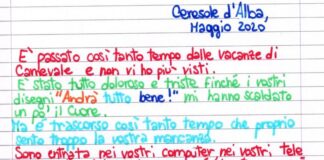 Ceresole d'Alba,
Maggio 2020
E' passato così tanto tempo dalle vacanze di
Carnevale e non vi ho più visti.
E' stato tutto doloroso e triste finché i vostri
disegni "Andrà tutto bene!" mi hanno scaldato
un po' il cuore.
Ma è trascorso così tanto tempo che proprio
sento troppo la vostra mancanza.
Sono entrata nei vostri computer nei vostri tele